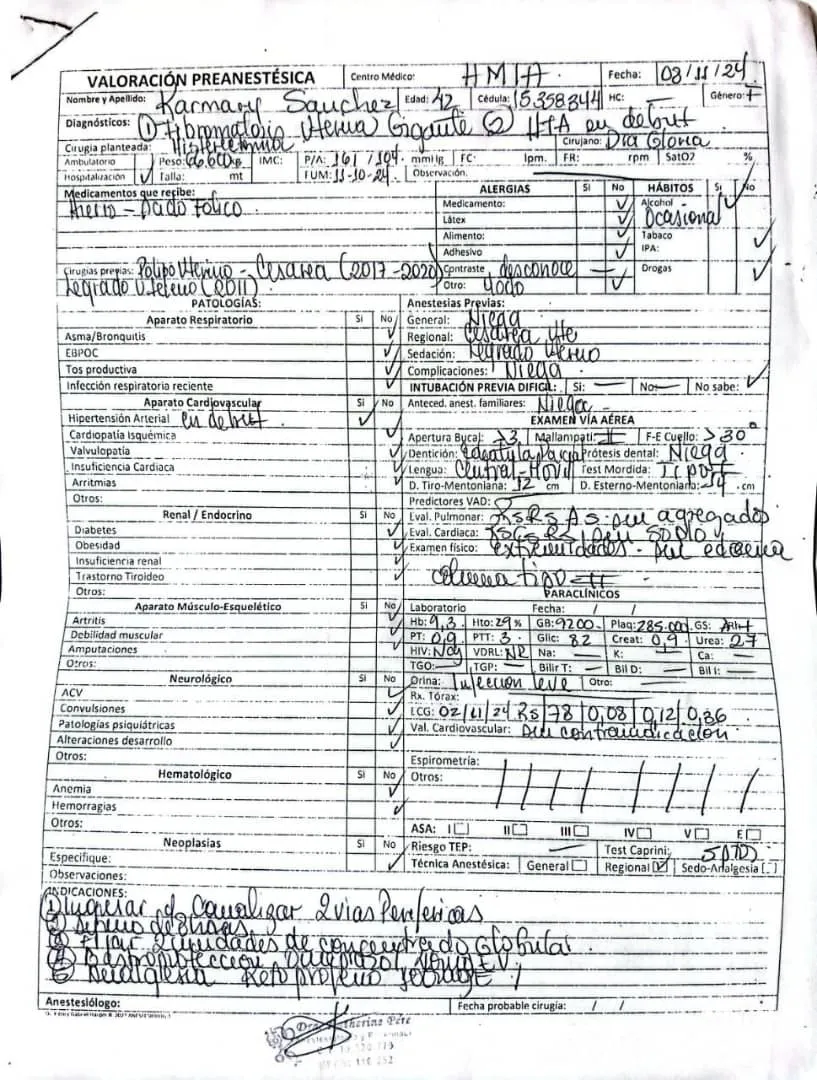 VALORACIÓN PREANESTÉSICA Centro Médico: HMIA. Fecha: 03/11/24
Nombre y Apellido: Karmary Sanchez Edad: 42 Cédula: 15358344 HC: Género: F
Diagnósticos: ① Fibromatosis Uterina Gigante ② HTA en debut
Cirugía planteada: Histerectomia Cirujano: Dra Gloria
Ambulatorio Peso: 66.600kg IMC: P/A: 161 / 104. mmHg FC: lpm. FR: rpm SatO2 %
Hospitalización ✓ Talla: mt FUM: 11-10-24. Observación.
Medicamentos que recibe: ALERGIAS Si No HÁBITOS Si No
Hierro - Acido Folico Medicamento: ✓ Alcohol ✓
Látex ✓ Ocasional
Alimento: ✓ Tabaco ✓
Adhesivo ✓ IPA:
Cirugías previas: Polipo Uterino - Cesarea (2017-2020) Contraste desconoce — Drogas ✓
Legrado Uterino (2011) Otro: Yodo ✓
PATOLOGÍAS: Anestesias Previas:
Aparato Respiratorio Si No General: Niega
Asma/Bronquitis ✓ Regional: Cesarea
EBPOC ✓ Sedación: Legrado Uterino
Tos productiva ✓ Complicaciones: Niega
Infección respiratoria reciente ✓ INTUBACIÓN PREVIA DIFICIL: Si: — No: — No sabe: ✓
Aparato Cardiovascular Si No Anteced. anest. familiares: Niega
Hipertensión Arterial en debut ✓ EXAMEN VÍA AÉREA
Cardiopatía Isquémica ✓ Apertura Bucal: >3 Mallampati: II F-E Cuello: >30°
Valvulopatía ✓ Dentición: Edentula Parcial Prótesis dental: Niega.
Insuficiencia Cardiaca ✓ Lengua: Central-Movil Test Mordida:
Arritmias ✓ D. Tiro-Mentoniana: 12 cm D. Esterno-Mentoniano: 14 cm
Otros: Predictores VAD:
Renal / Endocrino Si No Eval. Pulmonar: RsRs As sin agregados
Diabetes ✓ Eval. Cardiaca: RsCsRs sin soplo
Obesidad ✓ Examen físico: extremidades - sin edema
Insuficiencia renal ✓
Trastorno Tiroideo ✓ columna tipo II
Otros: PARACLÍNICOS
Aparato Músculo-Esquelético Si No Laboratorio Fecha: / /
Artritis ✓ Hb: 9,3. Hto: 29% GB: 9200. Plaq: 285.000 GS: ARH+
Debilidad muscular ✓ PT: 0,9 PTT: 3. Glic: 82 Creat: 0,9 Urea: 27
Amputaciones ✓ HIV: Neg VDRL: NR Na: — K: — Ca: —
Otros: TGO: — TGP: — Bilir T: — Bil D: — Bil I: —
Neurológico Si No Orina: Infeccion leve Otro:
ACV ✓ Rx. Tórax:
Convulsiones ✓ ECG: 02/11/24 Rs/78/0,08/0,12/0,36
Patologías psiquiátricas ✓ Val. Cardiovascular: sin contraindicacion.
Alteraciones desarrollo ✓
Otros: Espirometría:
Hematológico Si No Otros:
Anemia ✓
Hemorragias ✓
Otros: ASA: I II III IV V E
Neoplasias Si No Riesgo TEP: — Test Caprini: 5 PTOS
Especifique: ✓ Técnica Anestésica: General Regional ☑ Sedo-Analgesia
Observaciones:
INDICACIONES:
① Ingresar y Canalizar 2 vias Perifericas
② Ayuno de 8 horas
③ Fijar 2 unidades de concentrado Globular.
④ Gastroproteccion Omeprazol 40mg EV
⑤ Analgesia Ketoprofeno
Anestesiólogo: Fecha probable cirugía: / /